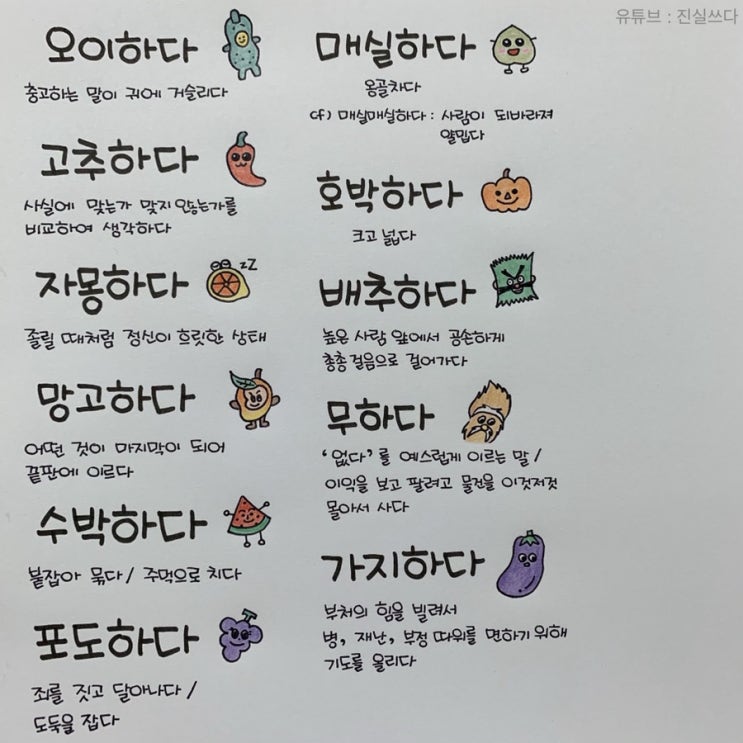 유튜브 : 진실쓰다
오이하다
충고하는 말이 귀에 거슬리다
고추하다
사실에 맞는가 맞지 않는가를
비교하여 생각하다
자몽하다
zZ
졸릴 때처럼 정신이 흐릿한 상태
망고하다
어떤 것이 마지막이 되어
끝판에 이르다
수박하다
붙잡아 묶다 / 주먹으로 치다
포도하다
죄를 짓고 달아나다 /
도둑을 잡다
매실하다
옹골차다
cf) 매실매실하다 : 사람이 되바라져
얄밉다
호박하다
크고 넓다
배추하다
높은 사람 앞에서 공손하게
총총 걸음으로 걸어가다
무하다
'없다'를 예스럽게 이르는 말 /
이익을 보고 팔려고 물건을 이것저것
몰아서 사다
가지하다
부처의 힘을 빌려서
병, 재난, 부정 따위를 면하기 위해
기도를 올리다